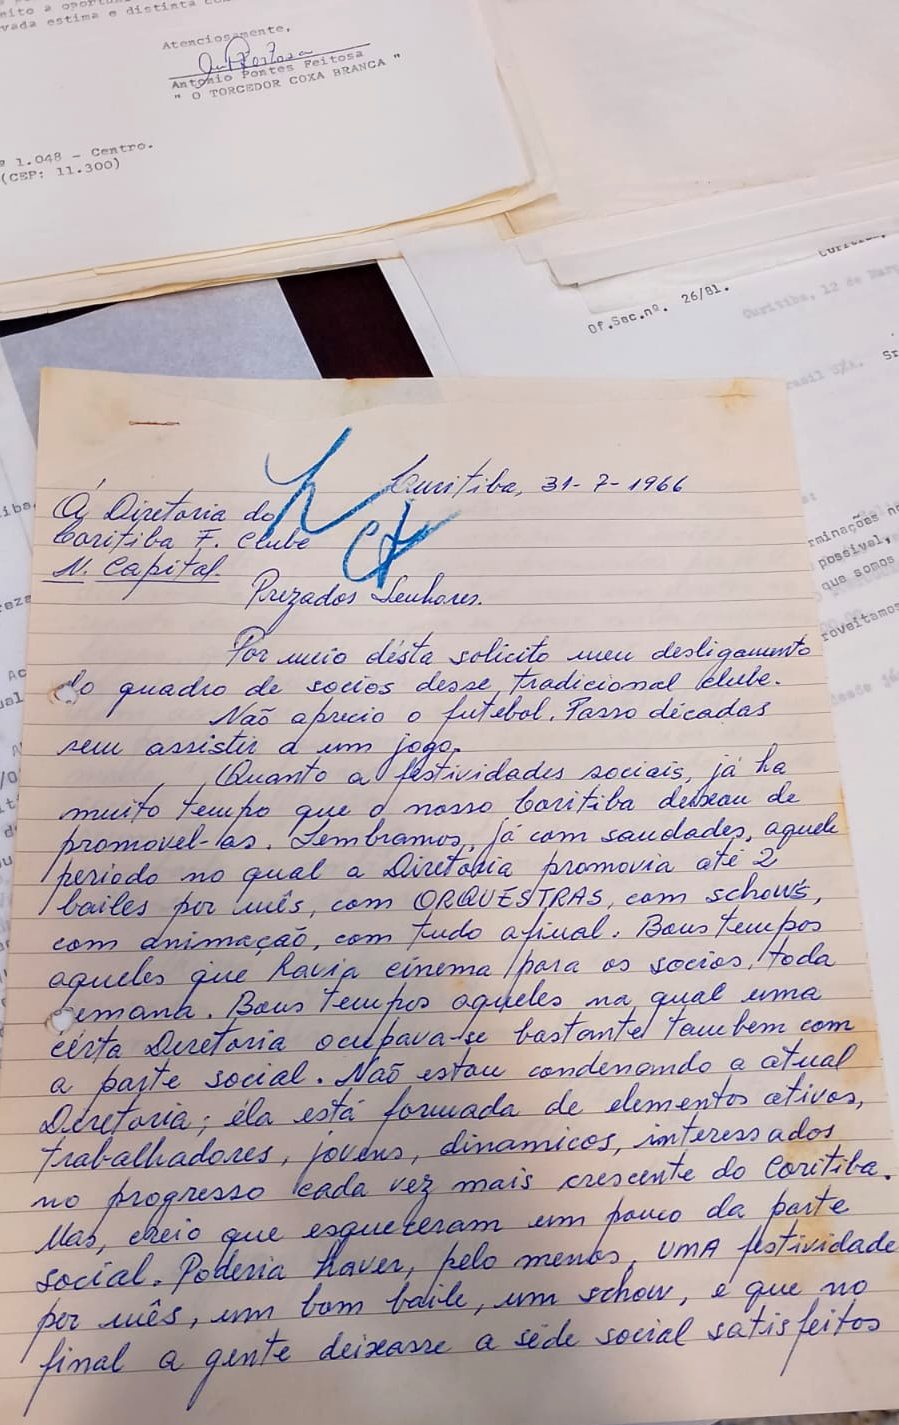 vada estima e distinta
Atenciosamente,
Antonio Pontes Feitosa
" O TORCEDOR COXA BRANCA "
1.048 - Centro.
(CEP: 11.300)
Of.Sec.nº. 26/81.
Curitiba, 12 de
Curitiba, 31-7-1966
Á Diretoria do
Coritiba F. Clube
N. Capital.
Prezados Senhores.
Por meio désta solicito meu desligamento
do quadro de socios desse tradicional clube.
Não aprecio o futebol. Passo décadas
sem assistir a um jogo.
Quanto a festividades sociais, já ha
muito tempo que o nosso Coritiba deixou de
promovel-as. Lembramos, já com saudades, aquele
periodo no qual a Diretoria promovia até 2
bailes por mês, com ORQUESTRAS, com schows,
com animação, com tudo afinal. Bons tempos
aqueles que havia cinema para os socios, toda
semana. Bons tempos aqueles na qual uma
cérta Diretoria ocupava-se bastante tambem com
a parte social. Não estou condenando a atual
Diretoria; éla está formada de elementos ativos,
trabalhadores, jovens, dinamicos, interessados
no progresso cada vez mais crescente do Coritiba.
Mas, creio que esqueceram um pouco da parte
social. Poderia haver, pelo menos, UMA festividade
por mês, um bom baile, um schow, e que no
final a gente deixasse a séde social satisfeitos
minações
possivel,
que somos
roveitamos